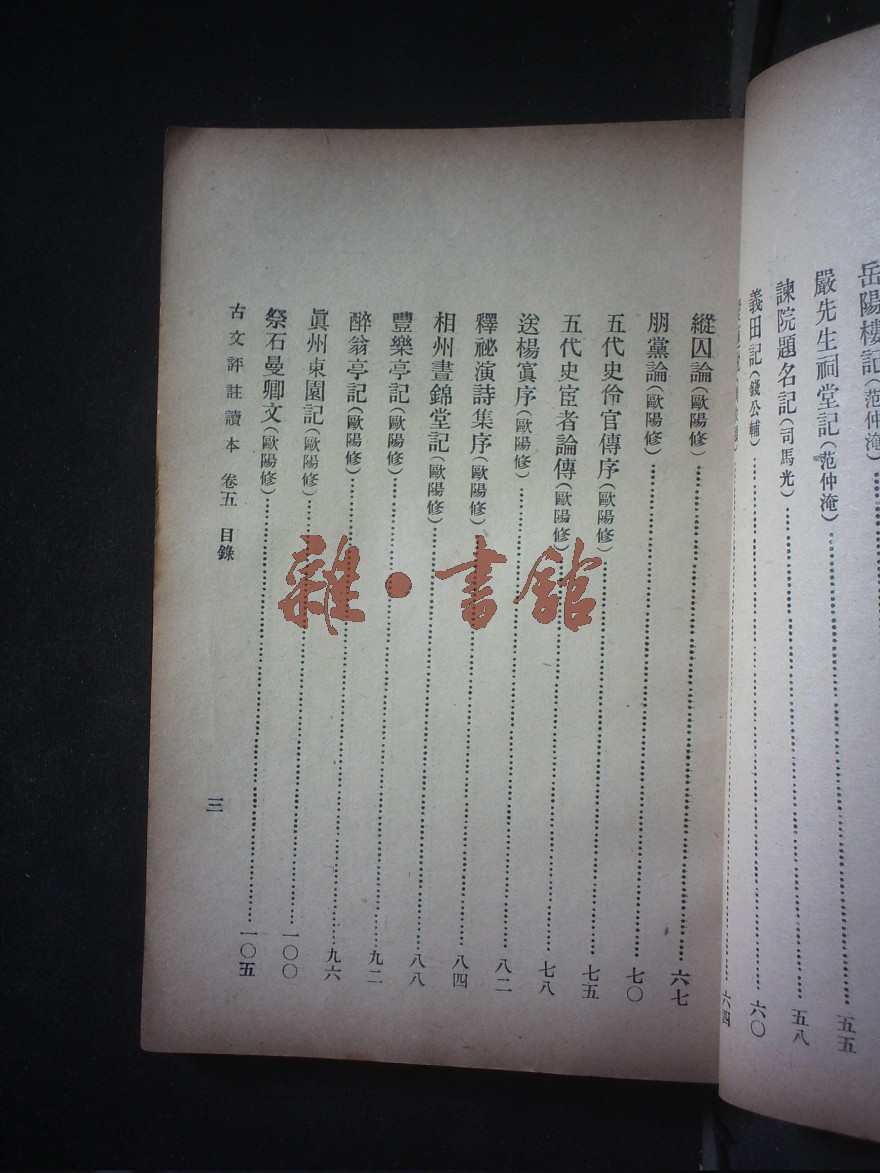 岳陽樓記(范仲淹)
嚴先生祠堂記(范仲淹)……五五
諫院題名記(司馬光)……五八
義田記(錢公輔)……六〇
六四
縱囚論(歐陽修)……六七
朋黨論(歐陽修)……七〇
五代史伶官傳序(歐陽修)……七五
五代史宦者論傳(歐陽修)……七八
送楊寘序(歐陽修)……八二
釋祕演詩集序(歐陽修)……八四
相州晝錦堂記(歐陽修)……八八
豐樂亭記(歐陽修)……九二
醉翁亭記(歐陽修)……九六
眞州東園記(歐陽修)……一〇〇
祭石曼卿文(歐陽修)……一〇五
古文評註讀本 卷五 目錄 三
雜·書館